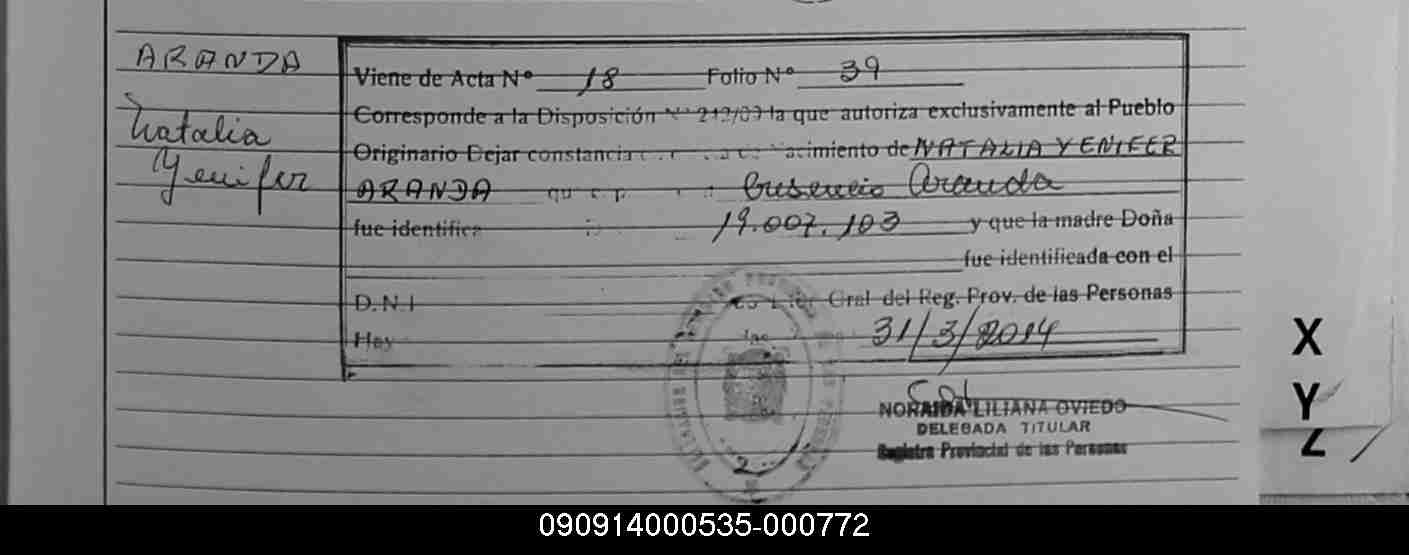 ARANDA
Natalia
Yenifer
Viene de Acta Nº 18 Folio Nº 39
Corresponde a la Disposición Nº 212/09 la que autoriza exclusivamente al Pueblo
Originario Dejar constancia acimiento de NATALIA YENIFER
ARANDA qu Aranda
fue identifica 19.007.103 y que la madre Doña
fue identificada con el
D.N.I Gral del Reg. Prov. de las Personas
Hay 31/3/2014
NORAIDA LILIANA OVIEDO
DELEGADA TITULAR
Registro Provincial de las Personas
X
Y
Z
090914000535-000772